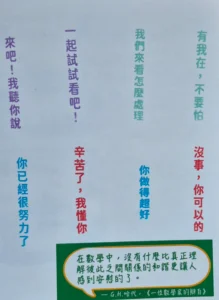 有我在，不要怕
我們來看怎麼處理
一起試試看吧！
來吧！我聽你說
沒事，你可以的
你做得超好
辛苦了，我懂你
你已經很努力了
在數學中，沒有什麼比真正理
解彼此之間關係的和諧更讓人
感到安慰的了。
—G.H.哈代，《一位數學家的辯白》